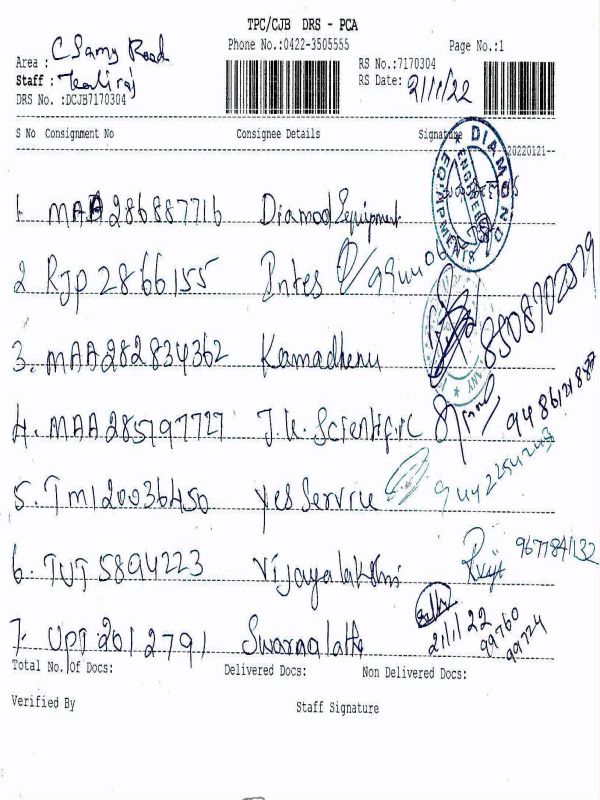 TPC/CJB DRS - PCA
Phone No.:0422-3505555
Page No.:1
Area : C Samy Road
RS No.:7170304
Staff :
RS Date: 21/1/22
DRS No. :DCJB7170304
S No Consignment No Consignee Details Signature
20220121--
1. MAA286887716 Diamod Equipment
DIAMOND
EQUIPMENTS
2 RJP 2866155 Intes
3. MAA282834362 Kamadhenu 8508902079
4. MAA285797727 J.K. Scientific
5. TM120036450 yes Service 9442254243
6. TUT 5894223 Vijayalakshmi 9677841132
7. UPT 2012791 Swarnalatha 21/1/22
99760
99724
Total No. Of Docs: Delivered Docs: Non Delivered Docs:
Verified By Staff Signature